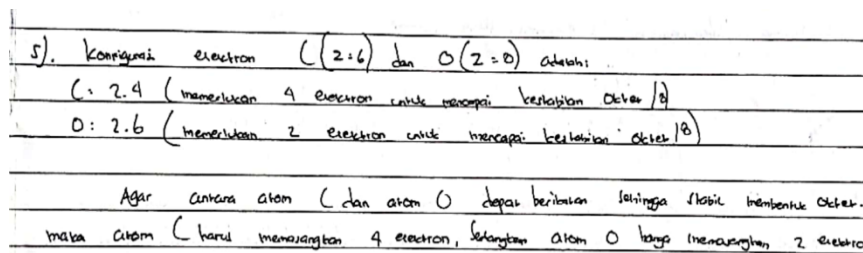 5). Konfigurasi elektron C (Z=6) dan O (Z=8) adalah:
C: 2.4 (memerlukan 4 elektron untuk mencapai kestabilan Oktet/8)
O: 2.6 (memerlukan 2 elektron untuk mencapai kestabilan Oktet/8)
Agar antara atom C dan atom O dapat berikatan sehingga stabil membentuk Oktet.
maka atom C harus memasangkan 4 elektron, sedangkan atom O hanya memasangkan 2 elektro